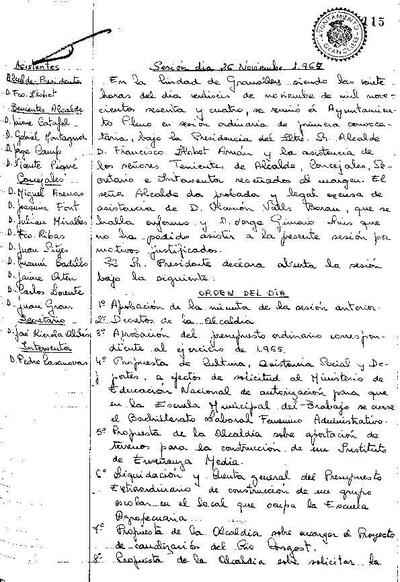 115
AYUNTAMIENTO
GRANOLLERS
Asistentes
Alcalde-Presidente
D. Fco. Llobet
Tenientes Alcalde
D. Jaime Catafal
D. Gabriel Montagud
D. Pepe Camp
D. Vicente Piqué
Concejales
D. Miguel Arenas
D. Joaquin Font
D. Julian Miralles
D. Fco. Ribas
D. Juan Sitjes
D. Badillo
D. Jaime
D. Carlos Lorente
D. Juan Grau
Secretario
D. José
Interventor
D. Pedro Casanovas
Sesión dia 26 Noviembre 1.964
En la Ciudad de Granollers siendo las veinte
horas del dia veintiseis de noviembre de mil nove-
cientos sesenta y cuatro, se reunió el Ayuntamien-
to Pleno en sesión ordinaria de primera convoca-
toria, bajo la Presidencia del Iltre. Sr. Alcalde
D. Francisco Llobet Arnán y la asistencia de
los señores Tenientes de Alcalde, Concejales, Se-
cretario e Interventor reseñados al margen. El
señor Alcalde da probada y legal excusa de
asistencia de D. Ramón Valls que se
halla enfermo y D. Jorge que
no ha podido asistir a la presente sesión por
motivos justificados.
El Sr. Presidente declara abierta la sesión
bajo la siguiente:
ORDEN DEL DIA
1º Aprobación de la minuta de la sesión anterior.
2º Decretos de la Alcaldia
3º Aprobación del presupuesto ordinario correspon-
diente al ejercicio de 1.965.
4º Propuesta de Cultura, Asistencia Social y De-
portes, a efectos de solicitud al Ministerio de
Educación Nacional de autorización para que
en la Escuela Municipal del Trabajo se curse
el Bachillerato Laboral Femenino Administrativo.
5º Propuesta de la Alcaldia sobre aportación de
terrenos para la construcción de un Instituto
de Enseñanza Media.
6º Liquidación y Cuenta general del Presupuesto
Extraordinario de construcción de un grupo
escolar en el local que ocupa la Escuela
Agropecuaria
7º Propuesta de la Alcaldia sobre encargar el Proyecto
de canalización del Rio Congost.
8º Propuesta de la Alcaldia sobre solicitar la